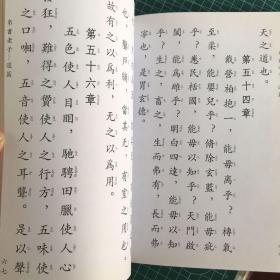 天之道也。
第五十四章
戴營袙抱一，能毋離乎？槫氣
至柔，能嬰兒乎？脩除玄藍，能毋疵
乎？愛民栝國，能毋以知乎？天門啟
闔，能為雌乎？明白四達，能毋以知
乎？生之，畜之，生而弗有，長而弗
宰也，是胃玄德。
也。鑿戶牖，當其无，有室之用也。
故有之以為利，无之以為用。
第五十六章
五色使人目明，馳騁田臘使人心
狂，難得之貨使人之行方，五味使
之口，五音使人之耳聾。是以聲
帛書老子·道篇
六七